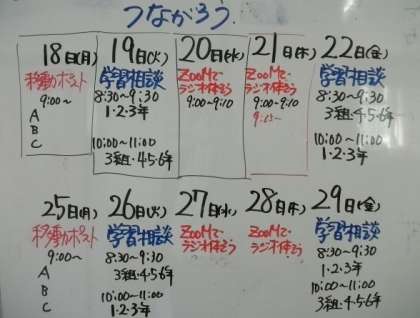 つながろう
18日(月)
移動ポスト
9:00～
A
B
C
19日(火)
学習相談
8:30～9:30
1・2・3年
10:00～11:00
3組・4・5・6年
20日(水)
ZOOMで
ラジオ体そう
9:00～9:10
21日(木)
ZOOMで
ラジオ体そう
9:00～9:10
22日(金)
学習相談
8:30～9:30
3組・4・5・6年
10:00～11:00
1・2・3年
25日(月)
移動ポスト
9:00～
A
B
C
26日(火)
学習相談
8:30～9:30
3組・4・5・6年
10:00～11:00
1・2・3年
27日(水)
ZOOMで
ラジオ体そう
28日(木)
ZOOMで
ラジオ体そう
29日(金)
学習相談
8:30～9:30
1・2・3年
10:00～11:00
3組・4・5・6年